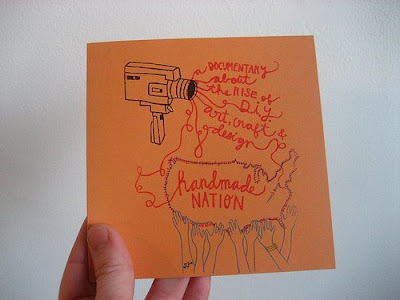 a DOCUMENTARY
about
the RISE of
D.i.y.
art, craft &
design
handmade
NATION